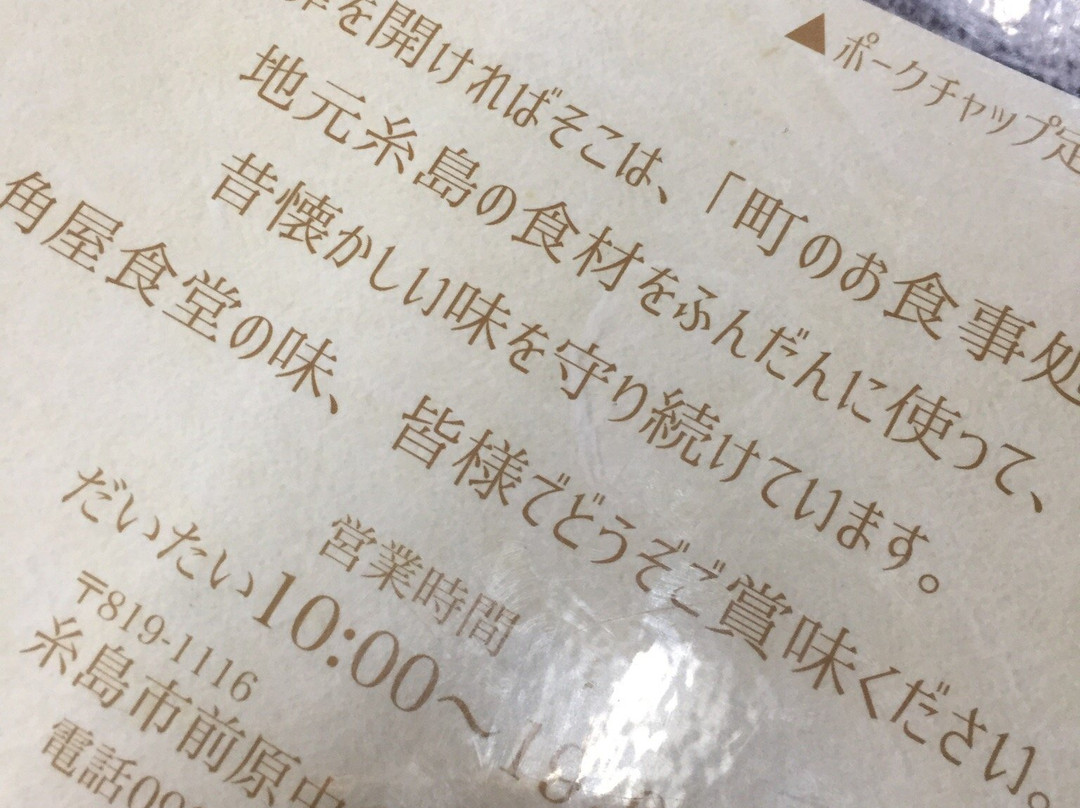 ▲ポークチャップ定
を開ければそこは、「町のお食事処
地元糸島の食材をふんだんに使って、
昔懐かしい味を守り続けています。
角屋食堂の味、皆様でどうぞご賞味ください。
営業時間
だいたい10:00〜18
〒819-1116
糸島市前原中
電話09